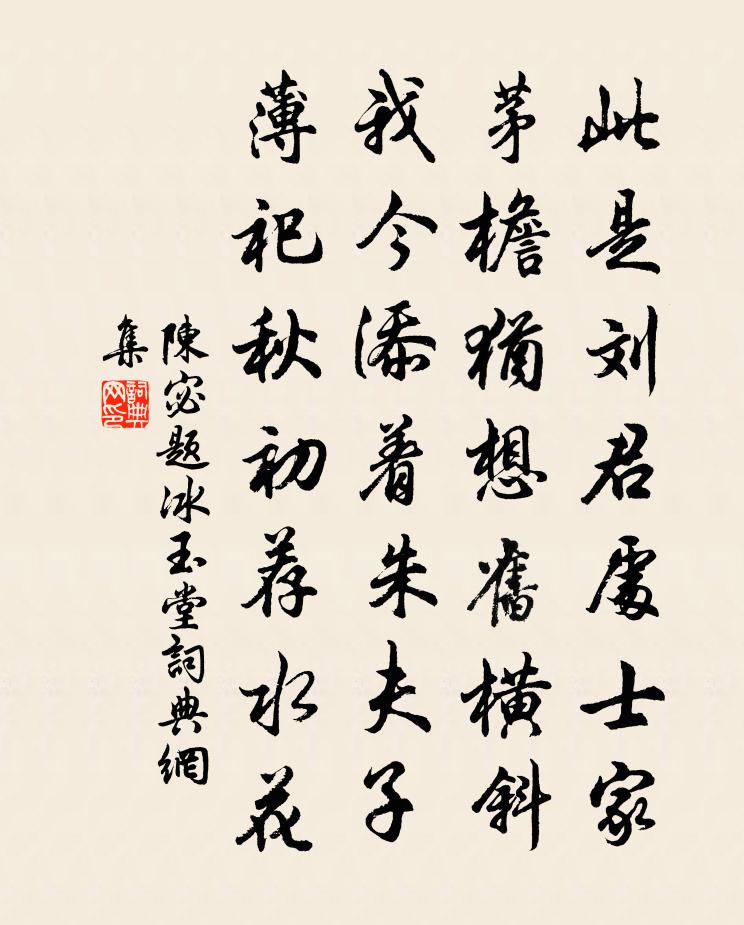 此是刘君處士家
茅檐猶想舊橫斜
我今添着朱夫子
薄祀秋初荐水花
陳宓题冰玉堂詞典網
集
詞典
网印